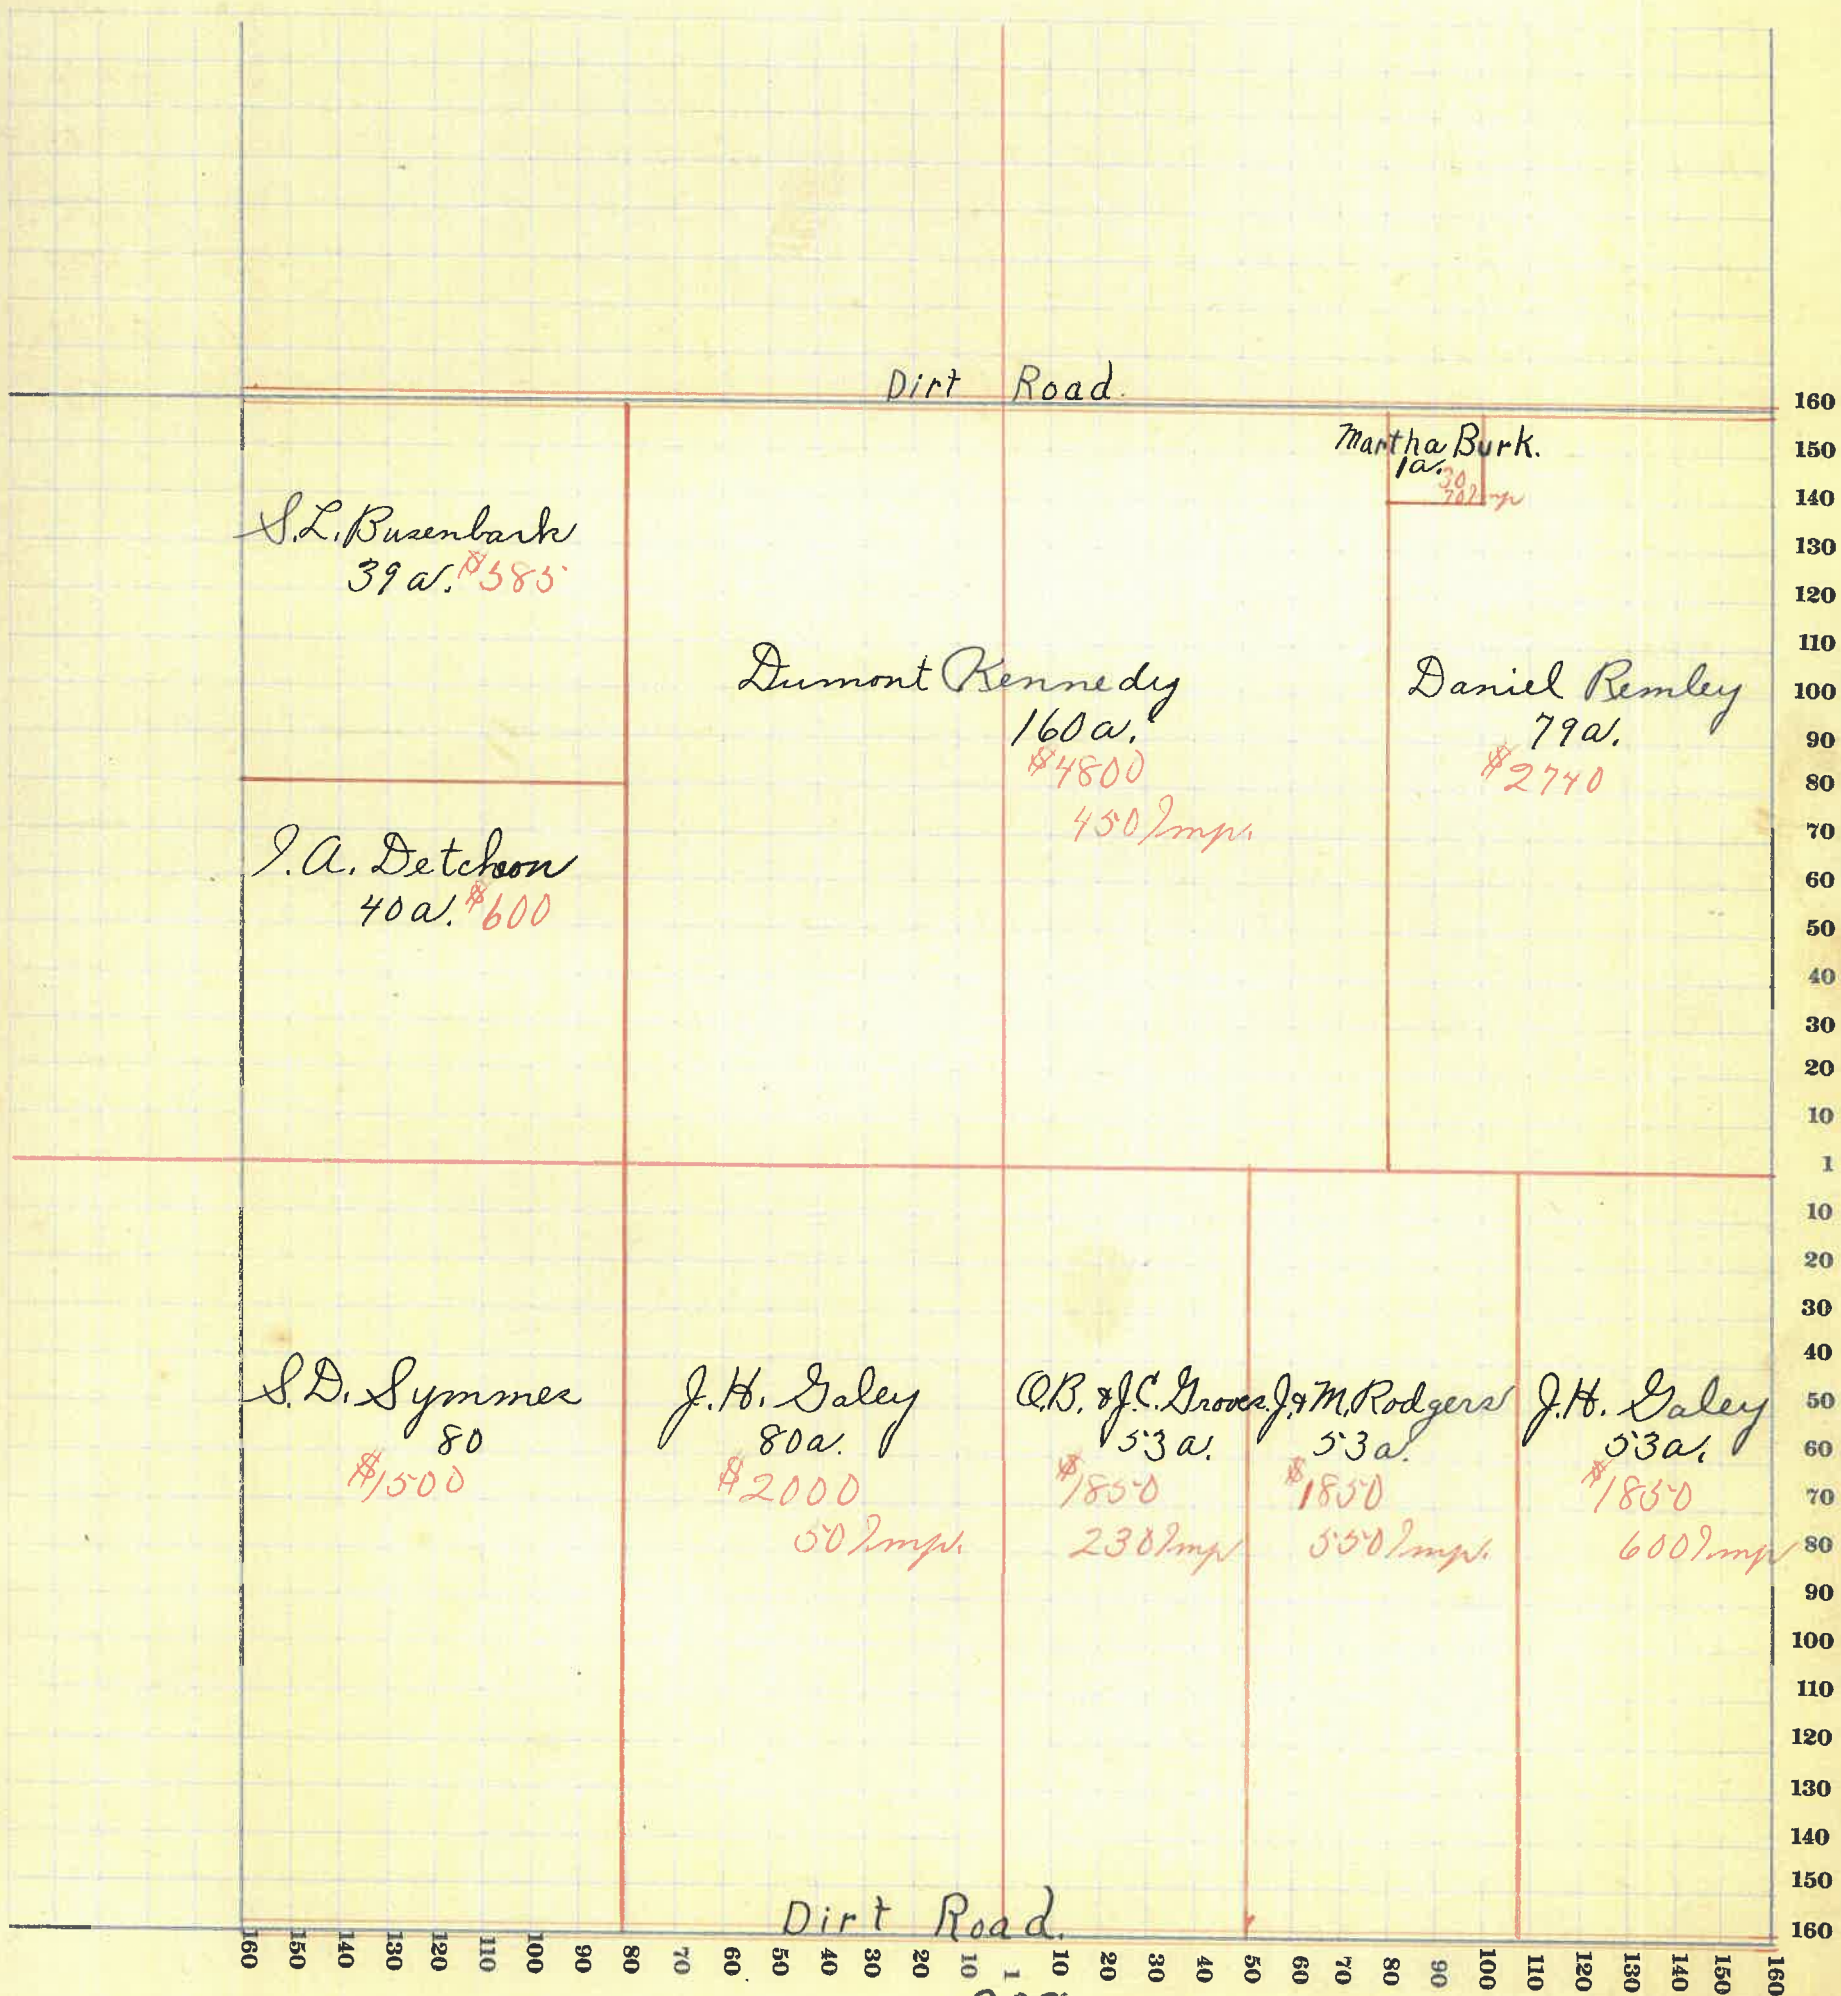 Dirt Road.
Martha Burk.
1a.
30
70 Imp
S.L. Busenbark
39 a. $585
Dumont Kennedy
160 a.
$4800
450 Imp.
Daniel Remley
79 a.
$2740
I.A. Detchon
40 a. $600
S.D. Symmes
80
$1500
J.H. Galey
80 a.
$2000
50 Imp.
O.B. & J.C. Groves.
53 a.
$1850
230 Imp
J. & M. Rodgers
53 a.
$1850
550 Imp.
J.H. Galey
53 a.
$1850
600 Imp
Dirt Road.
160
150
140
130
120
110
100
90
80
70
60
50
40
30
20
10
1
10
20
30
40
50
60
70
80
90
100
110
120
130
140
150
160
160 150 140 130 120 110 100 90 80 70 60 50 40 30 20 10 1 10 20 30 40 50 60 70 80 90 100 110 120 130 140 150 160